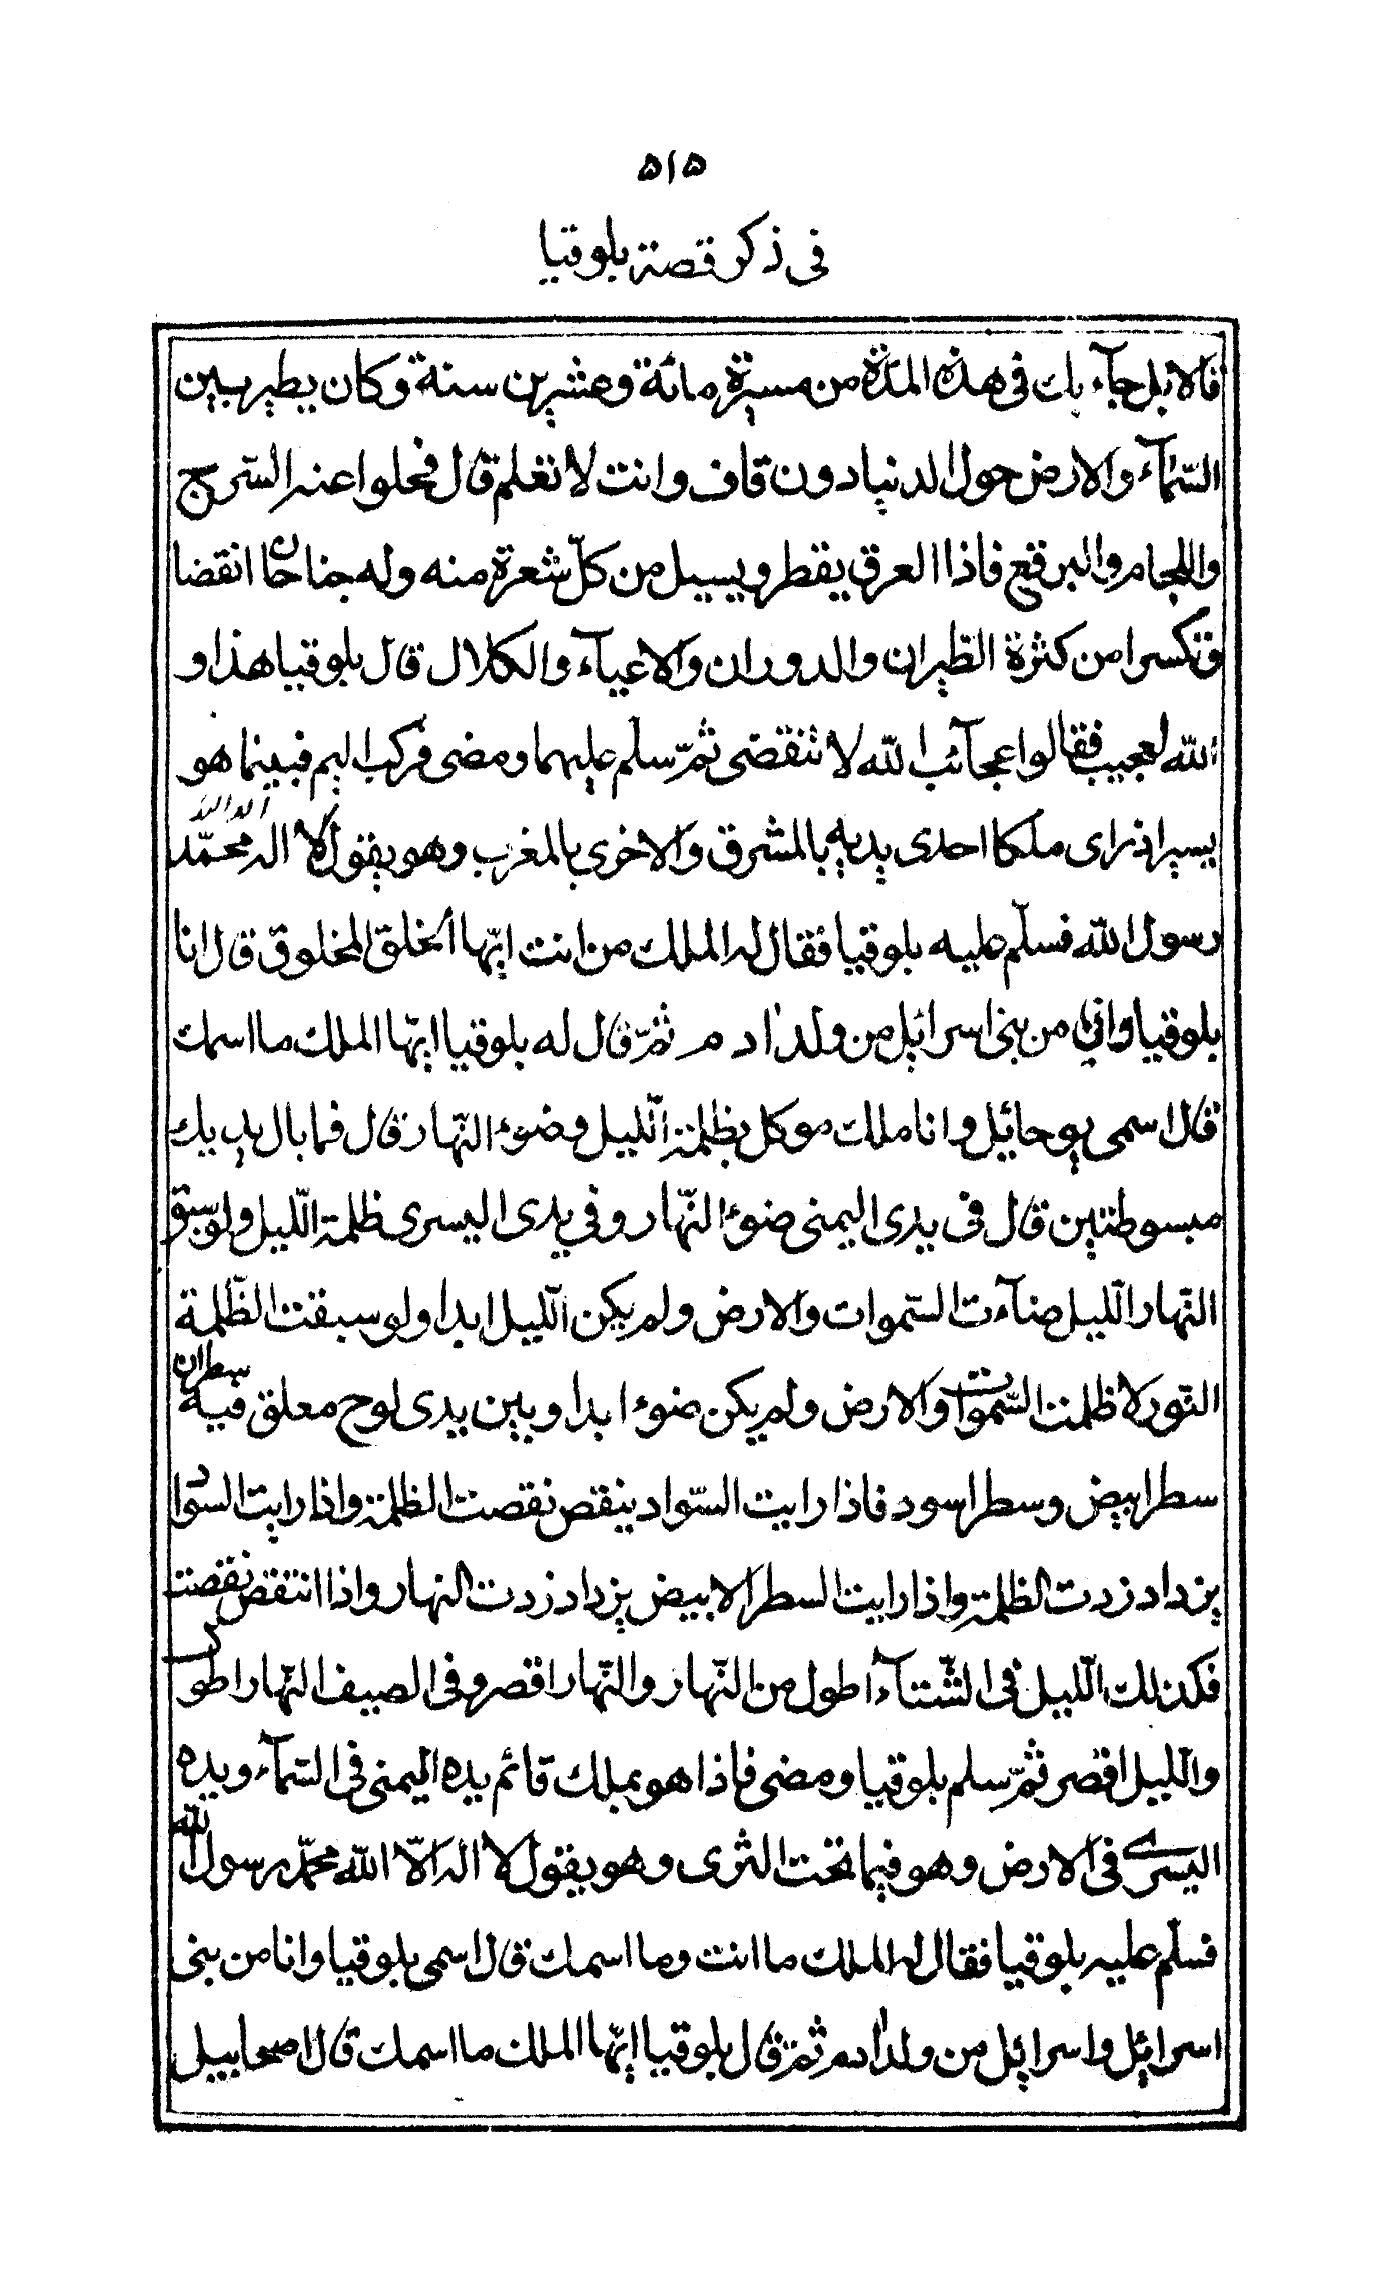 ۵۱۵
فی ذکر قصة بلوقیا
قالا بل جآء بك فی هذه المدّة من مسیرة مائة وعشرین سنة وکان یطیر بین
السّمآء والارض حول الدنیا دون قاف وانت لا تعلم قال فحلوا عنه السّرج
واللجام والبرقع فاذا العرق یقطر ویسیل من کلّ شعرة منه وله جناحان انقضا
وتکسرا من کثرة الطّیران والدوران والاعیآء والکلال قال بلوقیا هذا و
الله لعجیب فقالوا عجآئب الله لا تنقضی ثمّ سلّم علیهما ومضی فرکب الیم فبینما هو
یسیر اذ رای ملکا احدی یدیه بالمشرق والاخری بالمغرب وهو یقول لا اله الا الله محمّد
رسول الله فسلّم علیه بلوقیا فقال له الملك من انت ایّها الخلق المخلوق قال انا
بلوقیا وانی من بنی اسرائیل من ولد ادم ثمّ قال له بلوقیا ایّها الملك ما اسمك
قال اسمی یوحائیل وانا ملك موکل بظلمة اللّیل وضوء النّهار قال فما بال یدیك
مبسوطتین قال فی یدی الیمنی ضوء النّهار وفی یدی الیسری ظلمة اللّیل ولو سبق
النّهار اللّیل ضآءت السّموات والارض ولم یکن اللّیل ابدا ولو سبقت الظّلمة
النّور لاظلمت السّموات والارض ولم یکن ضوء ابدا وبین یدی لوح معلق فیه سطران
سطر ابیض وسطر اسود فاذا رایت السّواد ینقص نقصت الظلمة واذا رایت السّواد
یزداد زدت الظلمة واذا رایت السطر الابیض یزداد زدت النهار واذا انتقص نقصت
فکذلك اللّیل فی الشّتآء اطول من النّهار والنّهار اقصر وفی الصیف النّهار اطول
واللّیل اقصر ثمّ سلم بلوقیا ومضی فاذا هو بملك قائم یده الیمنی فی السّمآء ویده
الیسری فی الارض وهو فیما تحت الثری وهو یقول لا اله الّا الله محمّد رسول الله
فسلّم علیه بلوقیا فقال له الملك ما انت وما اسمك قال اسمی بلوقیا وانا من بنی
اسرائیل واسرائیل من ولد ادم ثمّ قال بلوقیا ایّها الملك ما اسمك قال اصحابیل